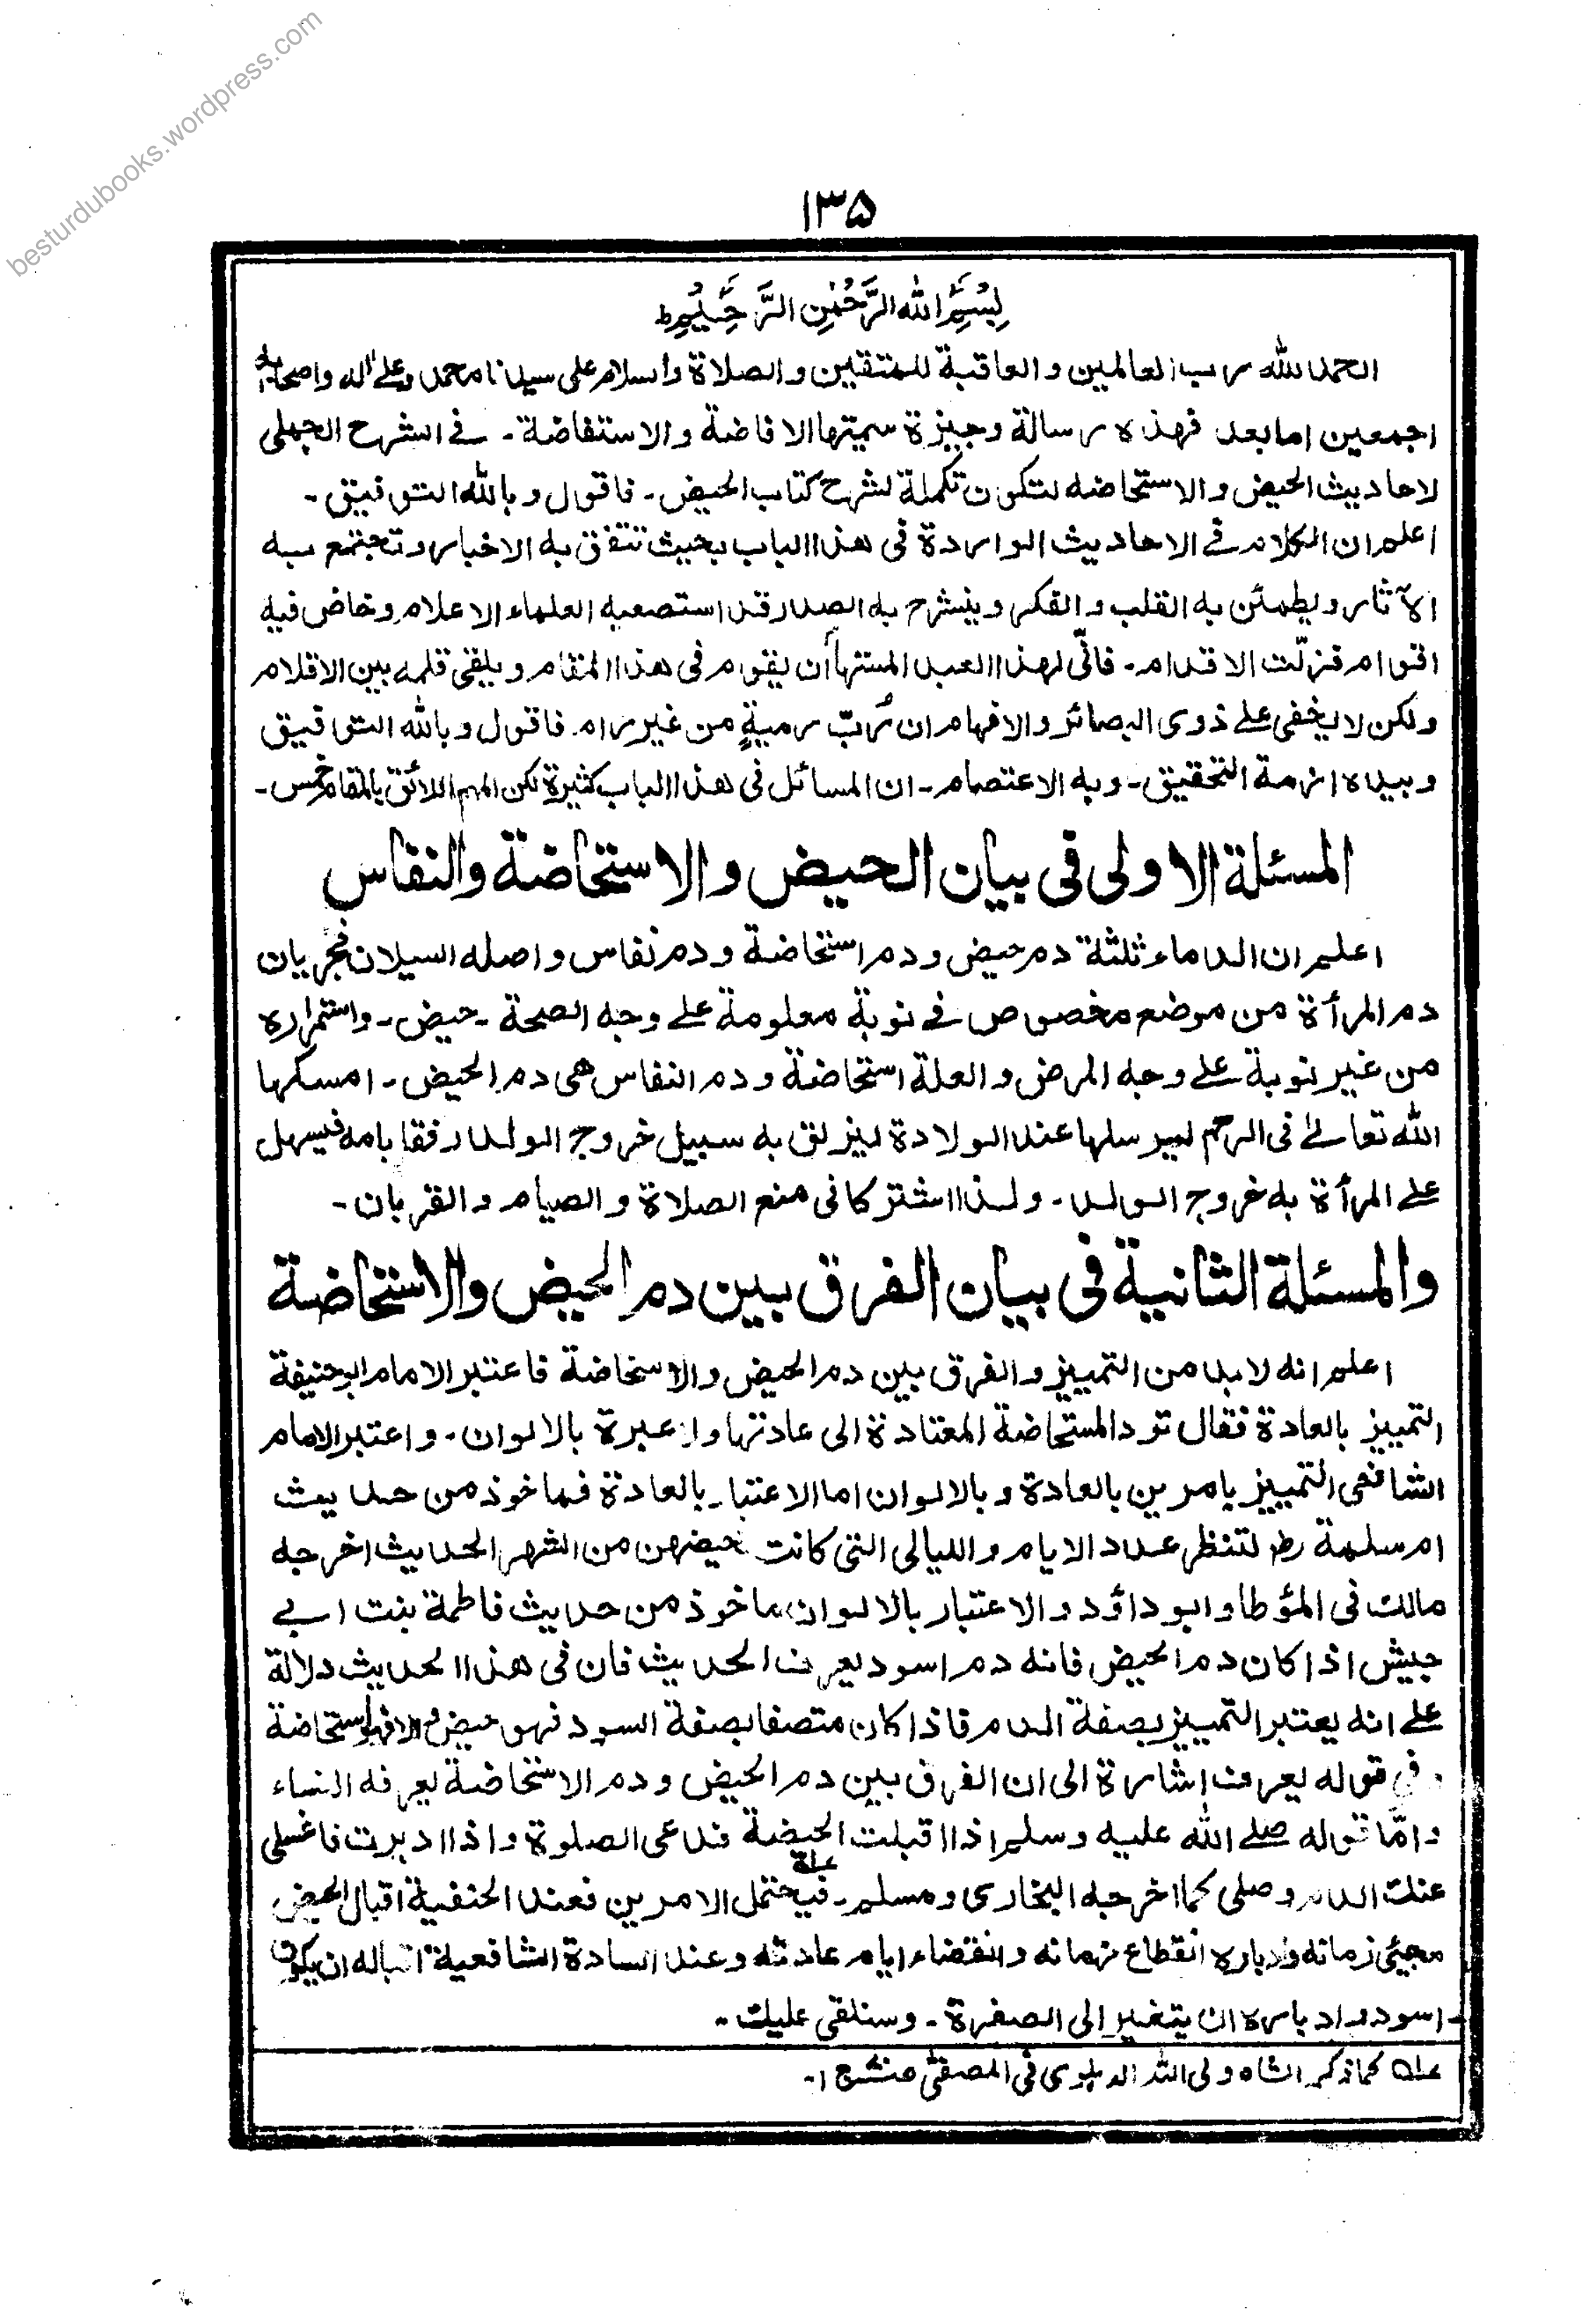 besturdubooks.wordpress.com
۱۳۵
بِسْمِ اللهِ الرَّحْمٰنِ الرَّحِيْمِ ط
الحمد لله رب العالمين والعاقبة للمتقين والصلاة والسلام على سيدنا محمد وعلى اله واصحابه
اجمعين اما بعد فهذه رسالة وجيزة سميتها الافاضة والاستفاضة۔ فى الشرح الجملى
لاحاديث الحيض والاستحاضه لتكون تكملة لشرح كتاب الحيض۔ فاقول وبالله التوفيق۔
اعلم ان الكلام فى الاحاديث الواردة فى هذا الباب بحيث تتفق به الاخبار وتجتمع به
الآثار ويطمئن به القلب والفكر وينشرح به الصدر قد استصعبه العلماء الاعلام وخاض فيه
اقوام فزلّت الاقدام۔ فانّى لهذا العبد المستهام أن يقوم فى هذا المقام ويلقى قلمه بين الاقلام
ولكن لا يخفى على ذوى البصائر والافهام ان رُبّ رميةٍ من غير رام۔ فاقول وبالله التوفيق
وبيده ازمة التحقيق۔ وبه الاعتصام۔ ان المسائل فى هذا الباب كثيرة لكن المهم اللائق بالمقام خمس۔
المسئلة الاولى فى بيان الحيض والاستحاضة والنفاس
اعلم ان الدماء ثلثة دم حيض ودم استحاضة ودم نفاس واصله السيلان فجريان
دم المرأة من موضع مخصوص فى نوبة معلومة على وجه الصحة۔ حيض۔ واستمراره
من غير نوبة على وجه المرض والعلة استحاضة ودم النفاس هى دم الحيض۔ امسكها
الله تعالى فى الرحم ليرسلها عند الولادة ليزلق به سبيل خروج الولد رفقا بامه فيسهل
على المرأة به خروج الولد۔ ولذا اشتركا فى منع الصلاة والصيام والقربان۔
والمسئلة الثانية فى بيان الفرق بين دم الحيض والاستحاضة
اعلم انه لابد من التمييز والفرق بين دم الحيض والاستحاضة فاعتبر الامام ابو حنيفة
التمييز بالعادة فقال ترد المستحاضة المعتادة الى عادتها ولا عبرة بالالوان۔ واعتبر الامام
الشافعى التمييز بامرين بالعادة وبالالوان اما الاعتبار بالعادة فماخوذ من حديث
ام سلمة رض لتنظر عدد الايام والليالى التى كانت تحيضهن من الشهر الحديث اخرجه
مالك فى المؤطا وابو داؤد والاعتبار بالالوان ماخوذ من حديث فاطمة بنت ابى
حبيش اذا كان دم الحيض فانه دم اسود يعرف الحديث فان فى هذا الحديث دلالة
على انه يعتبر التمييز بصفة الدم فاذا كان متصفا بصفة السود فهو حيض والا فهو استحاضة
وفى قوله يعرف اشارة الى ان الفرق بين دم الحيض ودم الاستحاضة يعرفه النساء
وامّا قوله صلى الله عليه وسلم اذا اقبلت الحيضة فدعى الصلوة واذا ادبرت فاغسلى
عنك الدم وصلى كما اخرجه البخارى ومسلم۔ فيحتمل الامرين عله فعند الحنفية اقبال الحيض
مجيئ زمانه وادباره انقطاع زمانه وانقضاء ايام عادته وعند السادة الشافعية اقباله ان يكون
اسود وادباره ان يتغير الى الصفرة۔ وسنلقى عليك۔
عله كما ذكر الشاه ولى الله الدهلوى فى المصفىٰ ج ۱۔